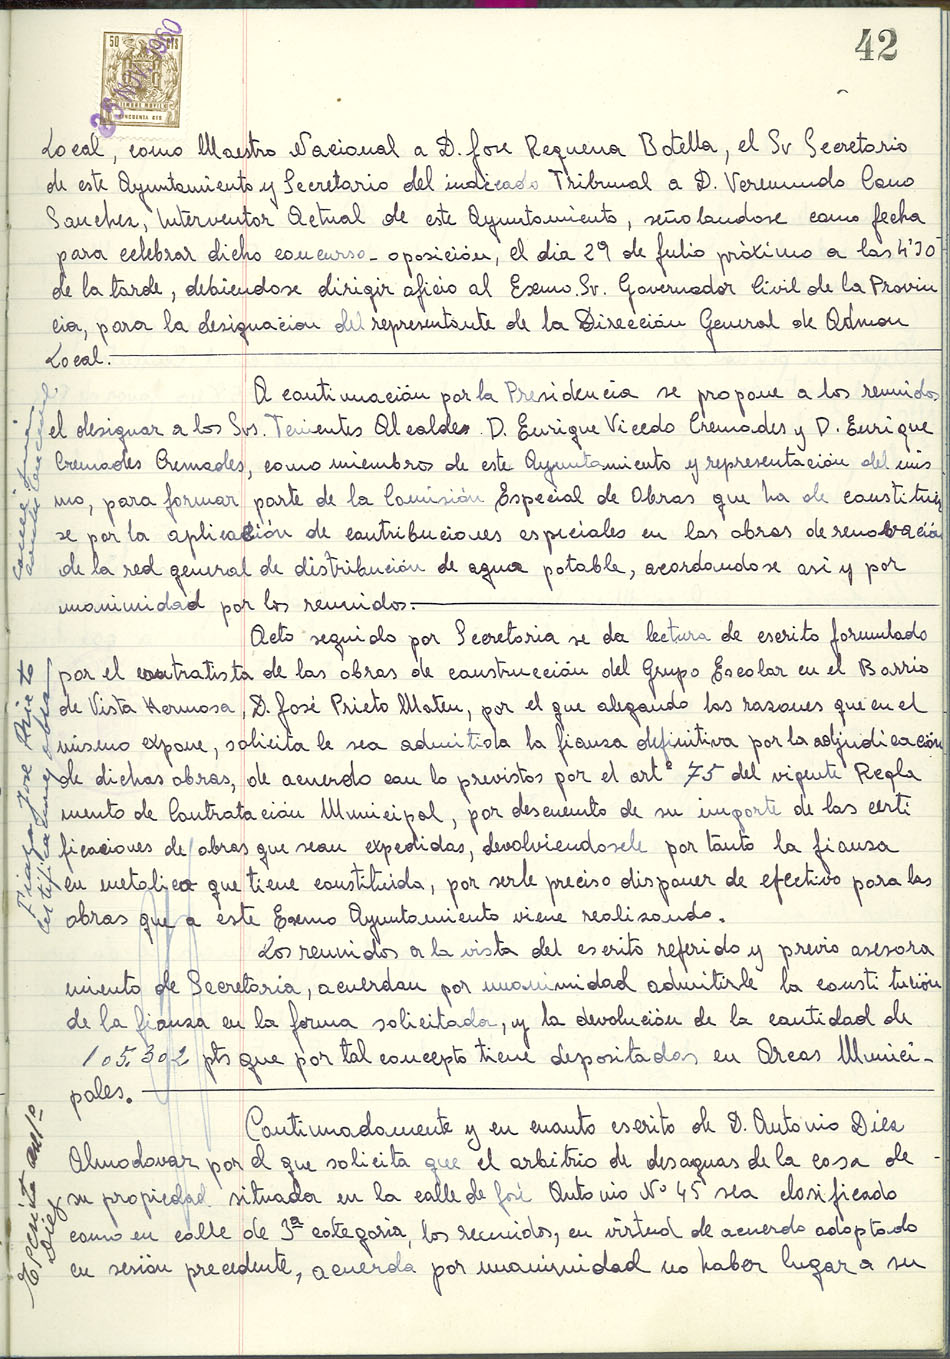 42
50 CTS
25 NOV 1960
TIMBRE MOVIL
CINCUENTA CTS
Local, como Maestro Nacional a D. Jose Requena Botella, el Sr Secretario
de este Ayuntamiento y Secretario del indicado Tribunal a D. Veremundo Cano
Sanchez, Interventor Actual de este Ayuntamiento, señalandose como fecha
para celebrar dicho concurso-oposición, el dia 29 de Julio próximo a las 4'30
de la tarde, debiendose dirigir oficio al Excmo. Sr. Governador Civil de la Provin
cia, para la designacion del representante de la Dirección General de Admon
Local.
A continuación por la Presidencia se propone a los reunidos
el designar a los Srs. Tenientes Alcaldes D. Enrique Vicedo Cremades y D. Enrique
Cremades Cremades, como miembros de este Ayuntamiento y representación del mis
mo, para formar parte de la Comisión Especial de Obras que ha de constituir
se por la aplicación de contribuciones especiales en las obras de renovación
de la red general de distribución de agua potable, acordandose asi y por
unanimidad por los reunidos.
Acto seguido por Secretaria se da lectura de escrito formulado
por el contratista de las obras de construcción del Grupo Escolar en el Barrio
de Vista Hermosa, D. José Prieto Mateu, por el que alegando las razones que en el
mismo expone, solicita le sea admitida la fianza definitiva por la adjudicación
de dichas obras, de acuerdo con lo previstos por el artº 75 del vigente Regla
mento de Contratación Municipal, por descuento de su importe de las certi
ficaciones de obras que sean expedidas, devolviendosele por tanto la fianza
en metalico que tiene constituida, por serle preciso disponer de efectivo para las
obras que a éste Excmo Ayuntamiento viene realizando.
Los reunidos a la vista del escrito referido y previo asesora
miento de Secretaria, acuerdan por unanimidad admitirle la constitución
de la fianza en la forma solicitada, y la devolución de la cantidad de
105.302 pts que por tal concepto tiene depositadas en Arcas Munici-
pales.
Continuadamente y en cuanto escrito de D. Antonio Diez
Almodovar por el que solicita que el arbitrio de desaguas de la casa de
su propiedad situador en la calle de José Antonio Nº 45 sea clasificado
como en calle de 3ª categoria, los reunidos, en virtud de acuerdo adoptado
en sesión precedente, acuerda por unanimidad no haber lugar a su
Fianza Jose Prieto
certificaciones obra
Diez